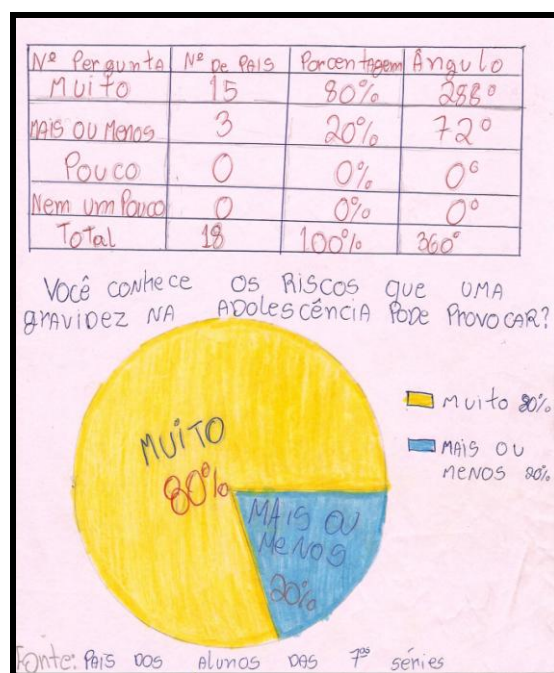 Nº Pergunta Nº De PAIS Porcentagem Ângulo
Muito 15 80% 288º
MAIS OU Menos 3 20% 72º
Pouco 0 0% 0º
Nem um Pouco 0 0% 0º
Total 18 100% 360º
Você conhece os Riscos que uma
gravidez na Adolescência Pode Provocar?
MUITO
80%
MAIS OU
MeNOS
20%
Muito 80%
MAIS OU
MENOS 20%
Fonte: PAIS DOS Alunos DAS 7ªs séries